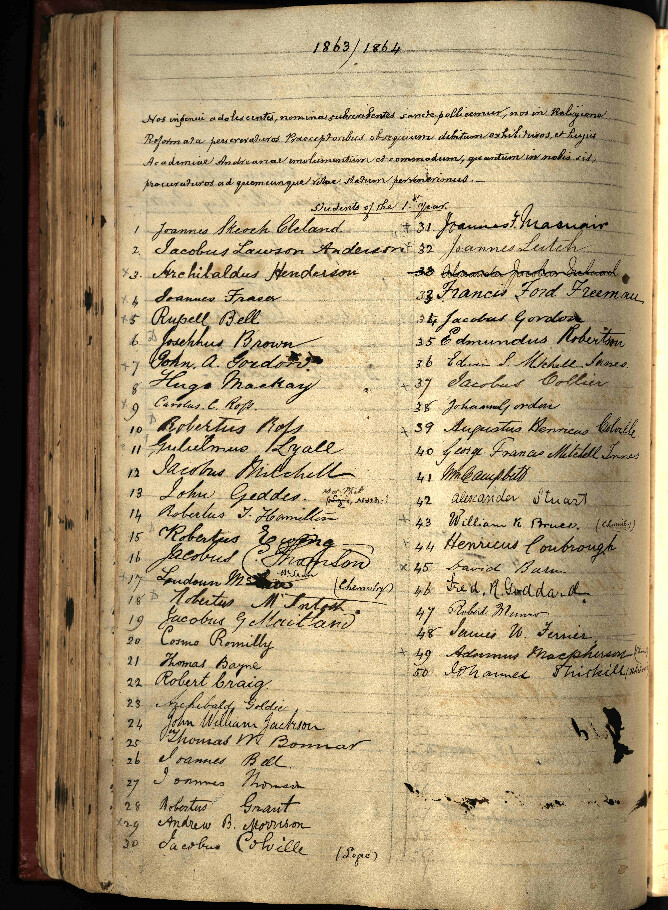 1863/1864
Nos ingenui adolescentes, nomina subscribentes sancte pollicemur, nos in Religione
Reformata perseveraturos Praeceptoribus obsequium debitum exhibituros, et hujus
Academiae Andreanae emolumentum et commodum, quantum in nobis sit,
procuraturos ad quemcunque vitae statum pervenerimus. —
Students of the 1st year.
1 Joannes Skeoch Cleland
2 Jacobus Lawson Anderson
3 Archibaldus Henderson
4 Joannes Fraser
5 Russell Bell
6 Josephus Brown
7 John. A. Gordon
8 Hugo Mackay
9 Carolus. C. Ross.
10 Robertus Ross
11 Gulielmus Lyall
12 Jacobus Mitchell
13 John Geddes.
14 Robertus T. Hamilton
15 Robertus Ewing
16 Jacobus C. Thomson
17 Loudoun (Chemistry)
18 Robertus McIntosh
19 Jacobus G Maitland
20 Cosmo Romilly
21 Thomas Bayne
22 Robert Craig.
23 Archibald Goldie
24 John William Jackson
25 Thomas M. Bonnar
26 Joannes Bell
27 Joannes Thomson
28 Robertus Grant
29 Andrew B. Morrison
30 Jacobus Colville (Logic)
31 Joannes F. Macnair
32 Joannes Leitch
33 Francis Ford Freeman
34 Jacobus Gordon
35 Edmundus Robertson
36 Edwin S. Mitchell Innes
37 Jacobus Collier
38 Johan Gordon
39 Augustus Henricus Colville
40 George Francis Mitchell Innes
41 Wm Campbell
42 Alexander Stuart
43 William K Bruce. (Chemistry)
44 Henricus Coubrough
45 David Barn
46 Fred. N. Goddard
47 Robert Munro
48 James W. Ferrier
49 Adamus Macpherson
50 Johannes Thirkill